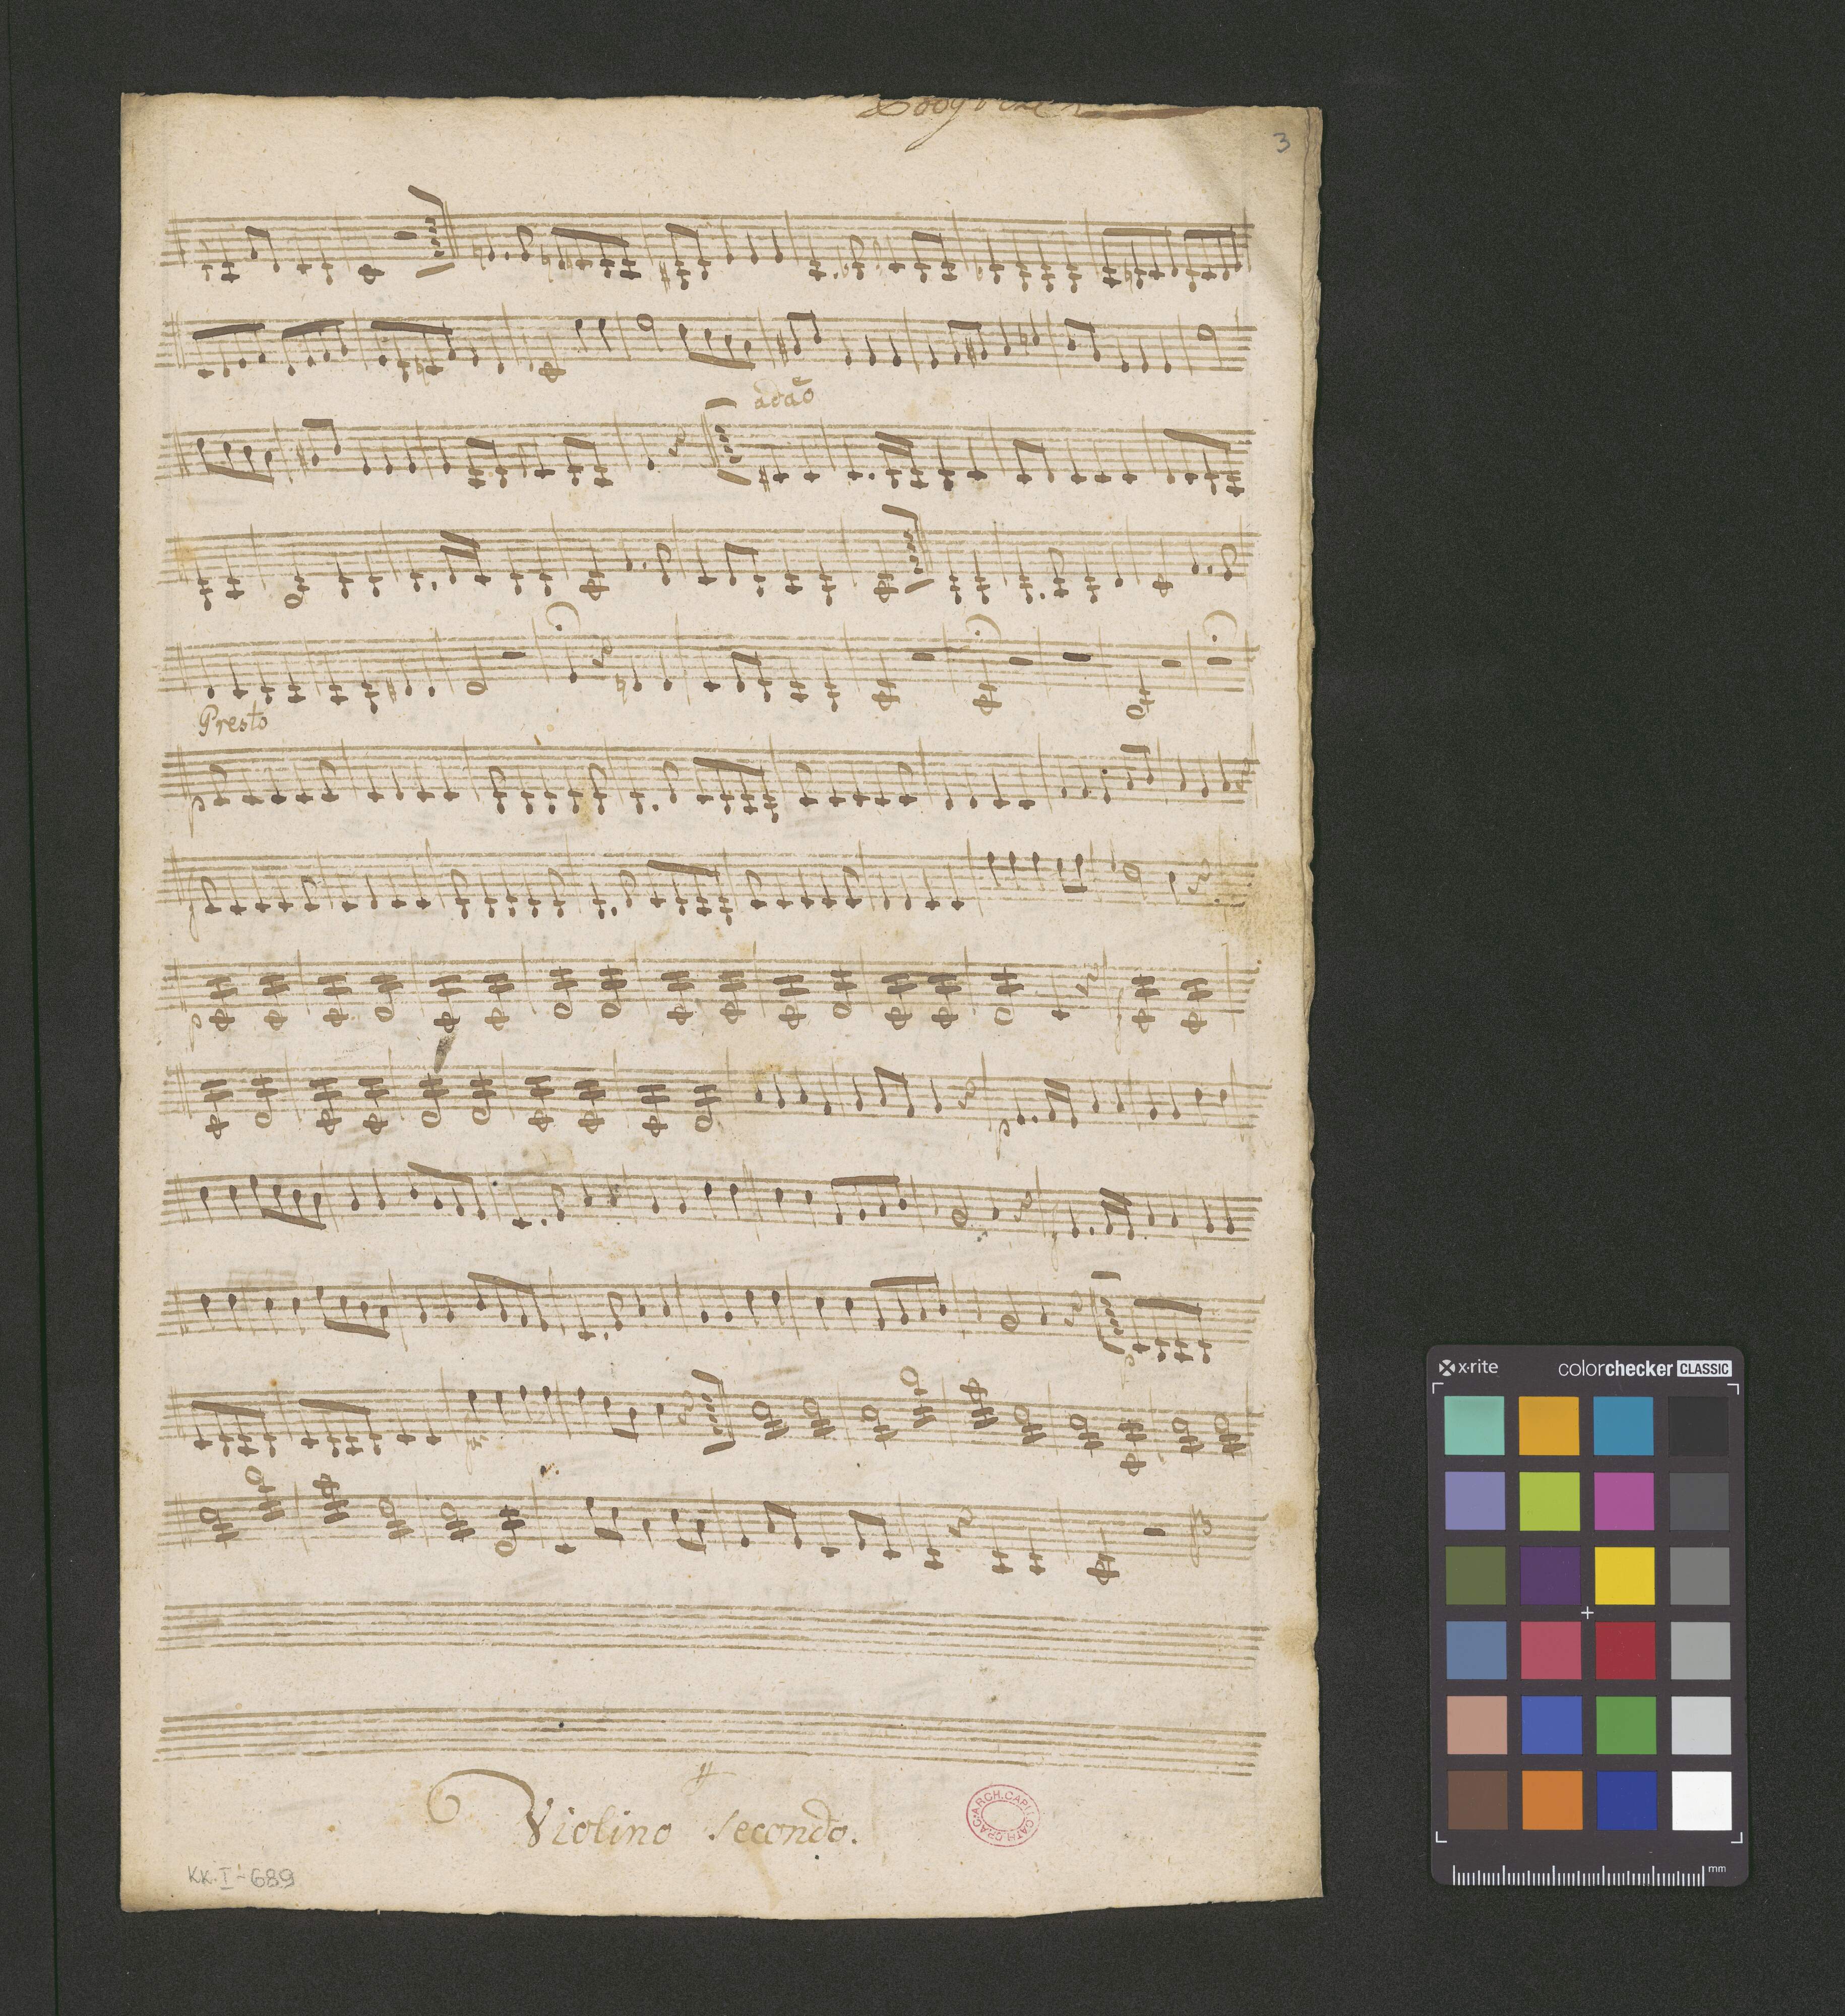 3
adaõ
Presto
p
p
p
Violino secondo.
ARCH. CAPIT. CATH. CRAC.
KK. I - 689
x-rite
colorchecker CLASSIC
mm